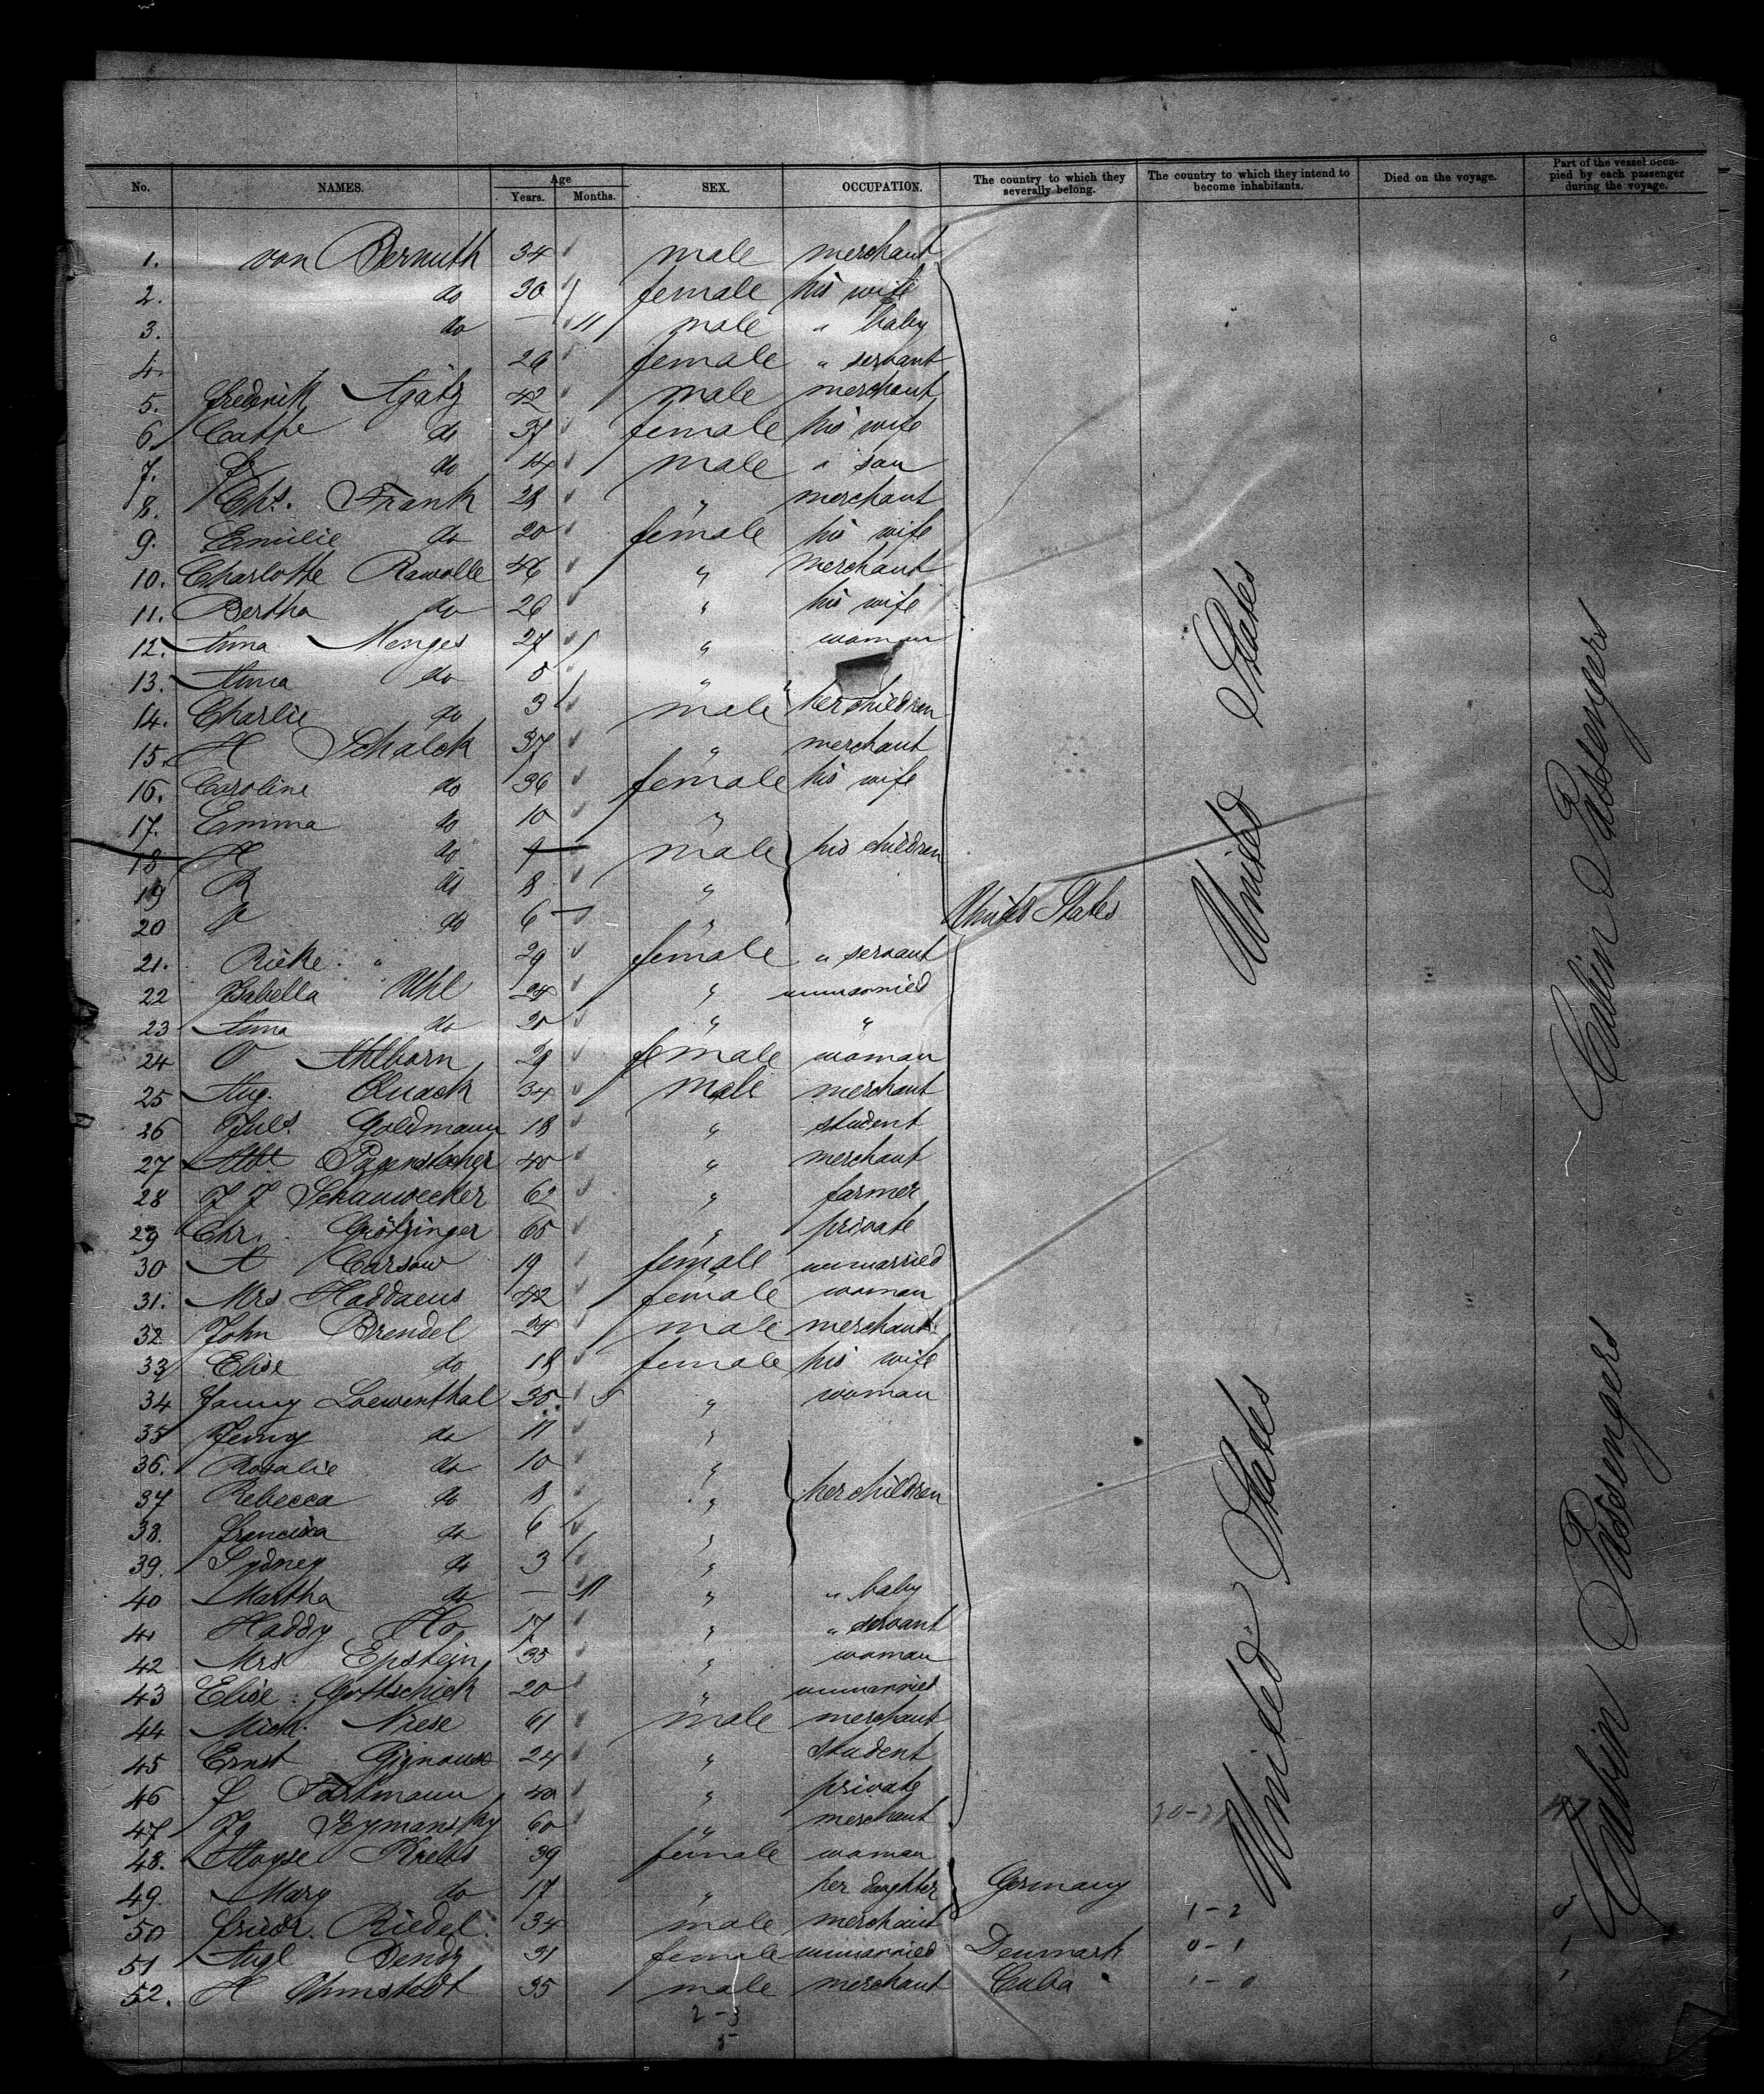 No. NAMES. Age Years. Months. SEX. OCCUPATION. The country to which they severally belong. The country to which they intend to become inhabitants. Died on the voyage. Part of the vessel occupied by each passenger during the voyage.
1. von Bernuth 34 male merchant
2. do 30 female his wife
3. do — 11 male " baby
4. 26 female " servant
5. Frederick Agatz 42 male merchant
6. do 37 female his wife
7. do 14 male " son
8. Chs. Frank 28 " merchant
9. Emilie do 20 female his wife
10. Charlotte Rawolle 46 " merchant
11. Bertha do 26 " his wife
12. Anna Menges 27 " woman
13. Anna do 5 "
14. Charlie do 3 male her children
15. H Schalck 37 " merchant
16. Caroline do 36 female his wife
17. Emma do 10 "
18 H do 9 male his children
19 R do 8 "
20 do 6 " United States United States Cabin Passengers
21. Rieke " 29 female " servant
22 Isabella Uhl 24 " unmarried
23 Anna do 20 " "
24 O Ahlborn 29 female woman
25 Aug. Quack 34 male merchant
26 Juls. Goldmann 18 " student
27 Alb. Pagenstecher 40 " merchant
28 J J Schauwecker 62 " farmer
29 Chr. Grötzinger 65 " private
30 A Carsow 19 female unmarried
31. Mrs Haddaeus 42 female woman
32 John Brendel 24 male merchant
33 Elise do 18 female his wife
34 Fanny Loewenthal 35 " woman
35 Jenny do 11 "
36. Rosalie do 10 "
37 Rebecca do 8 " her children
38. Francisca do 6 "
39. Sydney do 3 "
40 Martha do — 11 " " baby
41 Haddy Ho 17 " " servant
42 Mrs Epstein 35 " woman
43 Elise Gottschick 20 " unmarried
44 Mich. Niese 61 male merchant
45 Ernst 24 " student
46 40 " private
47 60 " merchant United States Cabin Passengers
48. Krebs 39 female woman
49. Mary do 17 " her daughter Germany
50 Friedr. Riedel 34 male merchant 1-2
51 Augl Bendz 31 female unmarried Denmark 0-1 1
52. H Ohmstedt 35 male merchant Cuba 1-0 1
2-3
5